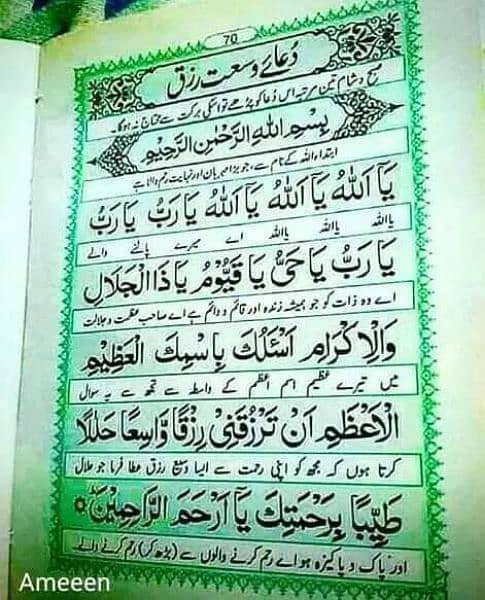 70
دُعائے وسعت رزق
صبح و شام تین مرتبہ اس دُعا کو پڑھے تو اسکی برکت سے محتاج نہ ہوگا۔
بِسْمِ اللّٰهِ الرَّحْمٰنِ الرَّحِیْمِ
ابتداء اللہ کے نام سے، جو بڑا مہربان اور نہایت رحم والا ہے
یَا اَللّٰهُ یَا اَللّٰهُ یَا اَللّٰهُ یَا رَبُّ یَا رَبُّ
یا اللہ یا اللہ یا اللہ اے میرے پالنے والے
یَا رَبُّ یَا حَیُّ یَا قَیُّوْمُ یَا ذَا الْجَلَالِ
اے وہ ذات کو جو ہمیشہ زندہ اور قائم و دائم ہے اے صاحب عظمت و جلالت
وَالْاِكْرَامِ اَسْئَلُكَ بِاسْمِكَ الْعَظِیْمِ
میں تیرے عظیم اسم اعظم کے واسطہ سے تجھ سے یہ سوال
الْاَعْظَمِ اَنْ تَرْزُقَنِیْ رِزْقًا وَّاسِعًا حَلٰلًا
کرتا ہوں کہ مجھ کو اپنی رحمت سے ایسا وسیع رزق عطا فرما جو حلال
طَیِّبًا بِرَحْمَتِكَ یَا اَرْحَمَ الرَّاحِمِیْنَ ط
اور پاک و پاکیزہ ہو اے رحم کرنے والوں سے (بڑھ کر) رحم کرنے والے۔
Ameeen